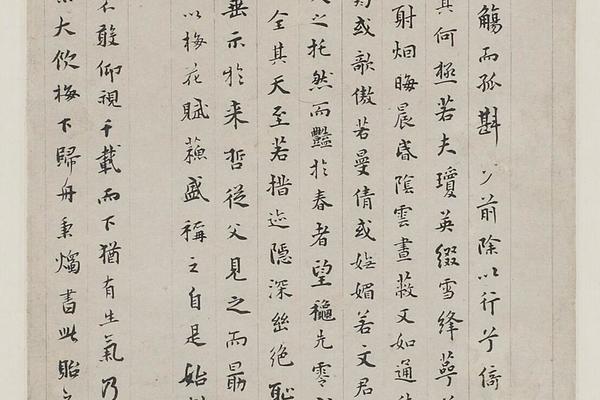 觴而孤斟 前除以行 倚
其何極若夫瓊英綴雪絳萼
射烟晦晨昏陰雲晝蔽又如通
或歌傲若曼倩或嫵媚若文君
之托然而豔於春者望龝先零
全其天至若措迹隱深幽絶恥
垂示於来哲從父見之而最
以梅花賦蘓盛稱之自是始
敢仰視千載而下猶有生氣乃
大飲梅下歸舟秉燭書此貽